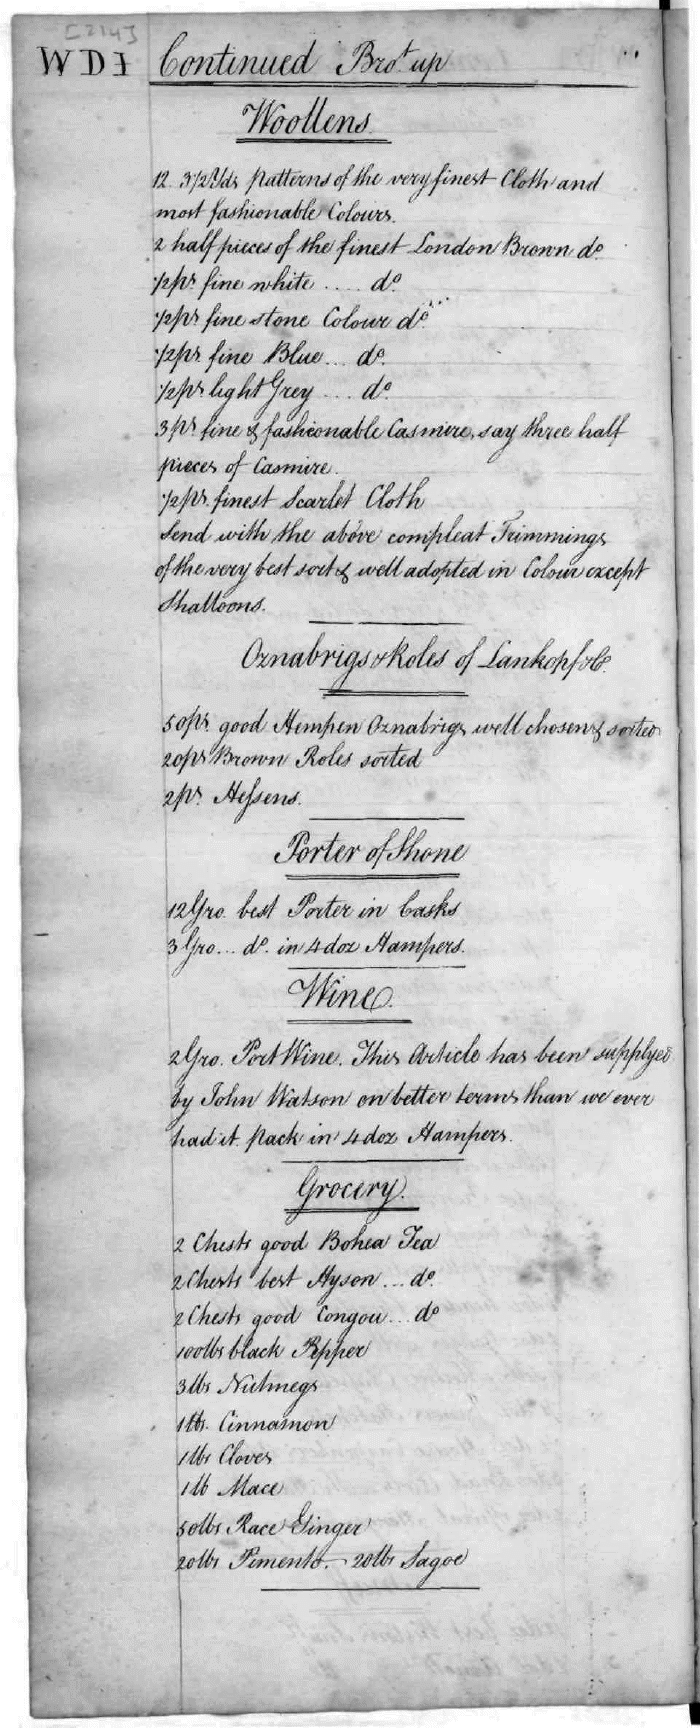 [214]
WDI Continued Bro.t up
Woollens
12. 3 1/2 Yds patterns of the very finest Cloth and
most fashionable Colours.
2 half pieces of the finest London Brown do.
1/2 ps. fine white .... do.
1/2 ps. fine stone Colour do.
1/2 ps. fine Blue ... do.
1/2 ps light Grey .... do.
3 ps. fine & fashionable Casmire, say three half
pieces of Casmire.
1/2 ps. finest Scarlet Cloth
Send with the above compleat Trimmings
of the very best sort & well adopted in Colour except
Shalloons.
Oznabrigs & Roles of Lankopf & Co.
50 ps. good Hempen Oznabrigs well chosen & sorted
20 ps Brown Roles sorted
2 ps. Hessens.
Porter of Shone
12 Gro. best Porter in Casks
3 Gro... do. in 4 doz Hampers.
Wine.
2 Gro. Port Wine. This Article has been supplyed
by John Watson on better terms than we ever
had it. pack in 4 doz Hampers.
Grocery.
2 Chests good Bohea Tea
2 Chests best Hyson ... do.
2 Chests good Congou ... do
100 lbs black Pepper
3 lbs Nutmegs
1 lb. Cinnamon
1 lbs Cloves
1 lb Mace
50 lbs Race Ginger
20 lbs Pimento. - 20 lbs Sagoe